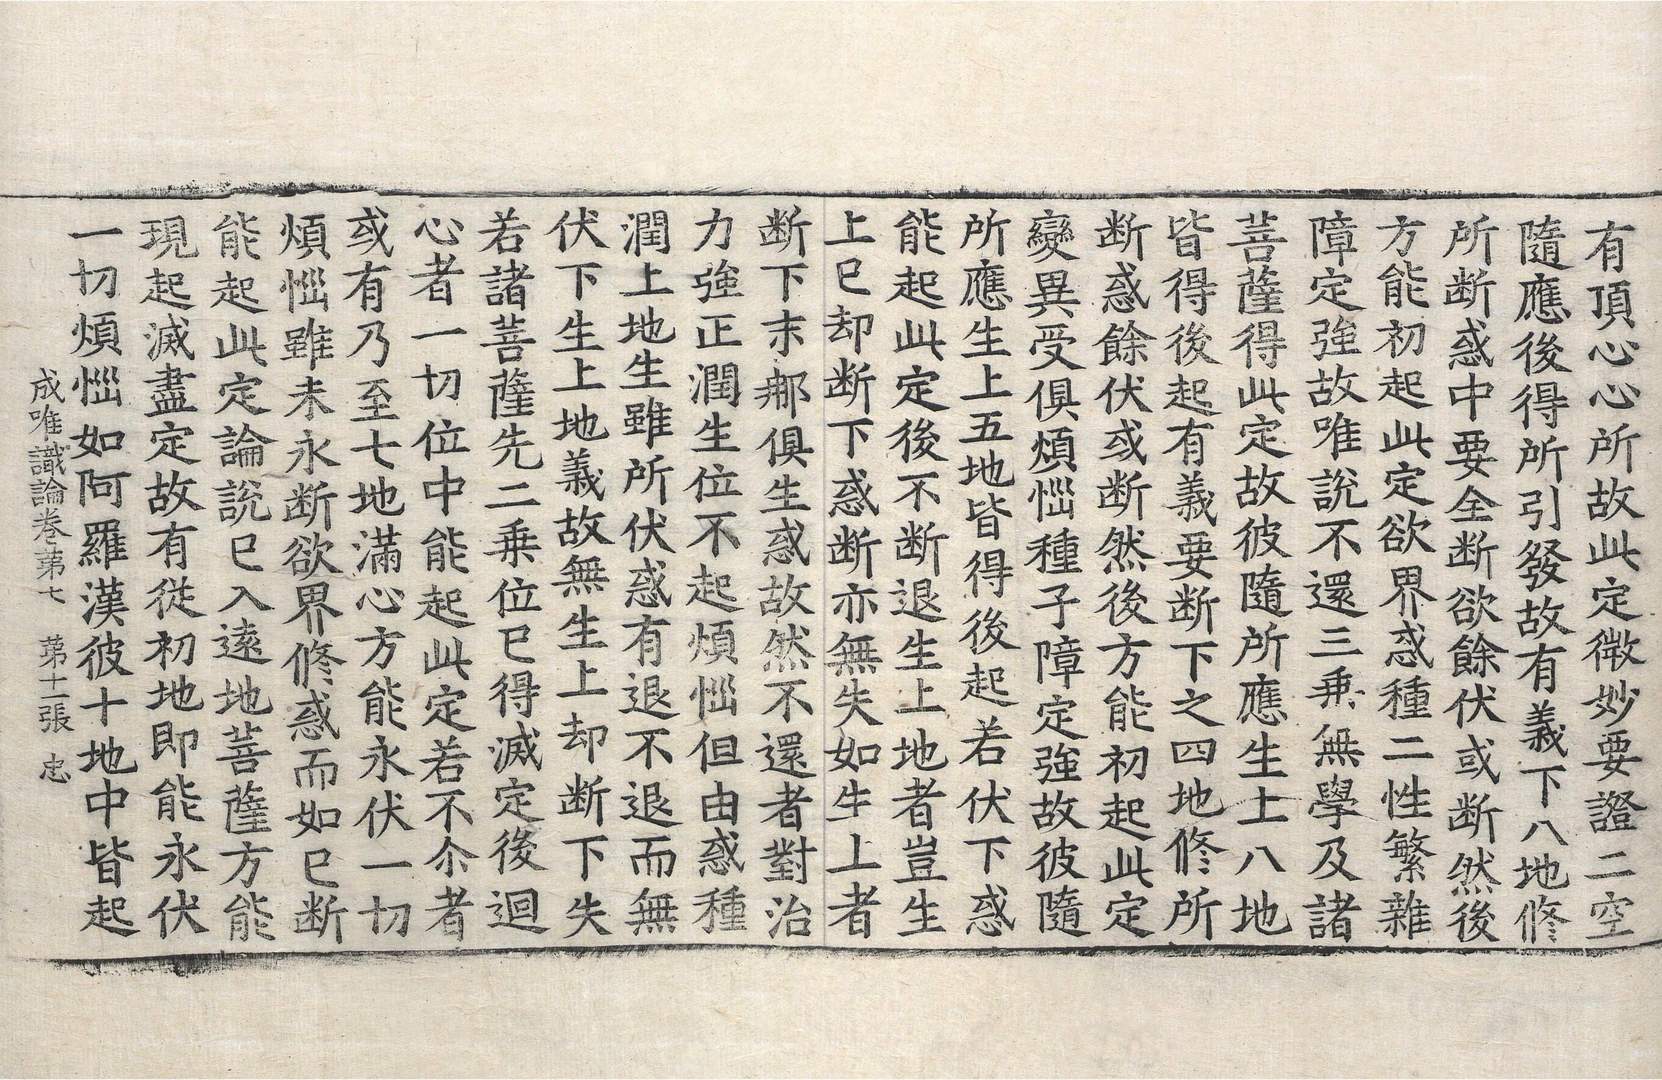 有頂心心所故此定微妙要證二空
隨應後得所引發故有義下八地修
所断惑中要全断欲餘伏或断然後
方能初起此定欲界惑種二性繁雜
障定強故唯說不還三乗無學及諸
菩薩得此定故彼隨所應生上八地
皆得後起有義要断下之四地修所
断惑餘伏或断然後方能初起此定
變異受俱煩惱種子障定強故彼隨
所應生上五地皆得後起若伏下惑
能起此定後不断退生上地者豈生
上已却断下惑断亦無失如生上者
断下末那俱生惑故然不還者對治
力強正潤生位不起煩惱但由惑種
潤上地生雖所伏惑有退不退而無
伏下生上地義故無生上却断下失
若諸菩薩先二乗位已得滅定後迴
心者一切位中能起此定若不尒者
或有乃至七地滿心方能永伏一切
煩惱雖未永断欲界修惑而如已断
能起此定論說已入遠地菩薩方能
現起滅盡定故有従初地即能永伏
一切煩惱如阿羅漢彼十地中皆起
成唯識論卷第七 第十二張 忠